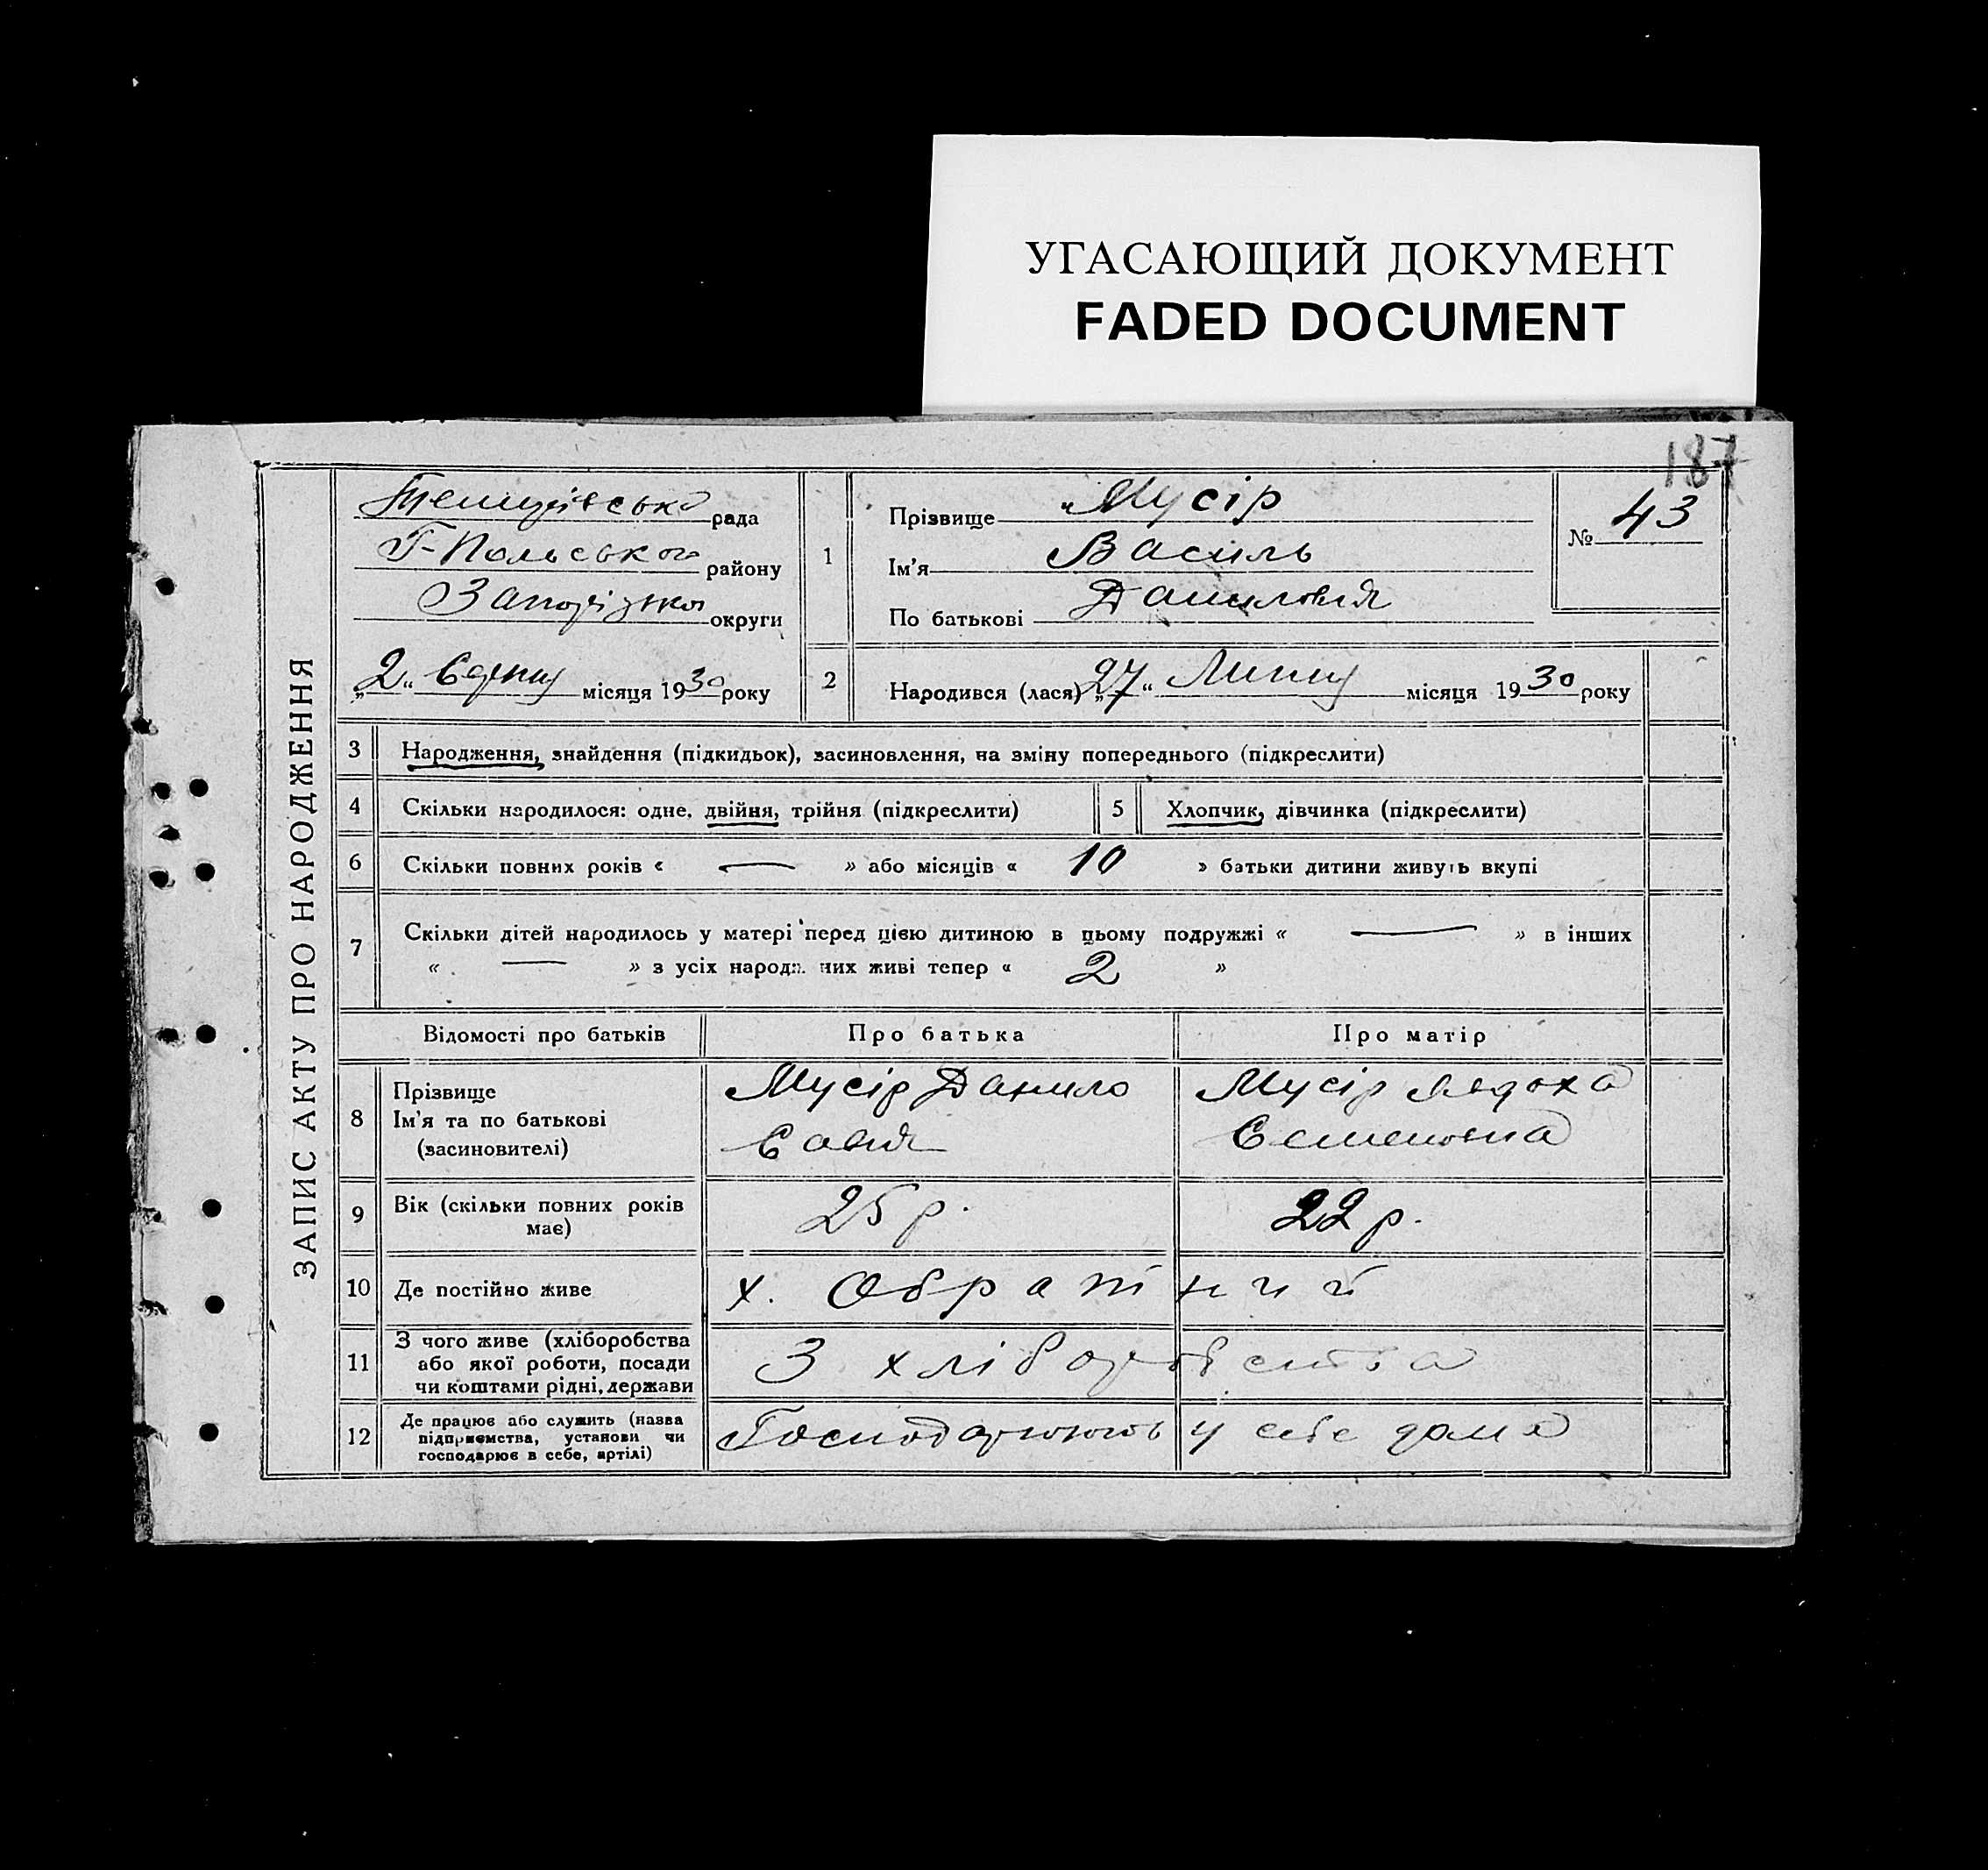 УГАСАЮЩИЙ ДОКУМЕНТ
FADED DOCUMENT
187
ЗАПИС АКТУ ПРО НАРОДЖЕННЯ
рада
Г-Польського району
округи
„2“ Серпня місяця 1930 року
1
Прізвище Мусір
Ім'я Василь
По батькові Данилович
№ 43
2
Народився (лася) „27“ Липня місяця 1930 року
3 Народження, знайдення (підкидьок), засиновлення, на зміну попереднього (підкреслити)
4 Скільки народилося: одне, двійня, трійня (підкреслити) 5 Хлопчик, дівчинка (підкреслити)
6 Скільки повних років « — » або місяців « 10 » батьки дитини живуть вкупі
7 Скільки дітей народилось у матері перед цією дитиною в цьому подружжі « — » в інших
« — » з усіх народж. них живі тепер « 2 »
Відомості про батьків Про батька Про матір
8 Прізвище
Ім'я та по батькові
(засиновителі)
Мусір Данило
Савич
Мусір Явдоха
Семеновна
9 Вік (скільки повних років має) 25 р. 22 р.
10 Де постійно живе х. Обратний
11 З чого живе (хліборобства
або якої роботи, посади
чи коштами рідні, держави
З хліборобства
12 Де працює або служить (назва
підприємства, установи чи
господарює в себе, артілі)
Господарюють у себе дома